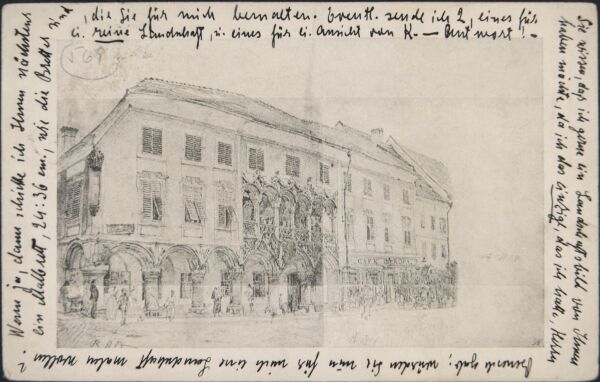 Sie wissen, daß ich gerne ein Landschaftsbild von Ihnen
haben möchte, da ich das einzige, das ich hatte,
gab; würden Sie nun für mich eine Landschaft malen wollen?
Wenn ja, dann schicke ich Ihnen nächstens
ein Malbrett, 24:36 cm., wie die Bretter sind
, die Sie für mich bemalten. Eventl. sende ich 2, eines für
ei. reine Landschaft, u. eines für ei. Ansicht von K. — Antwort! -
CAFE